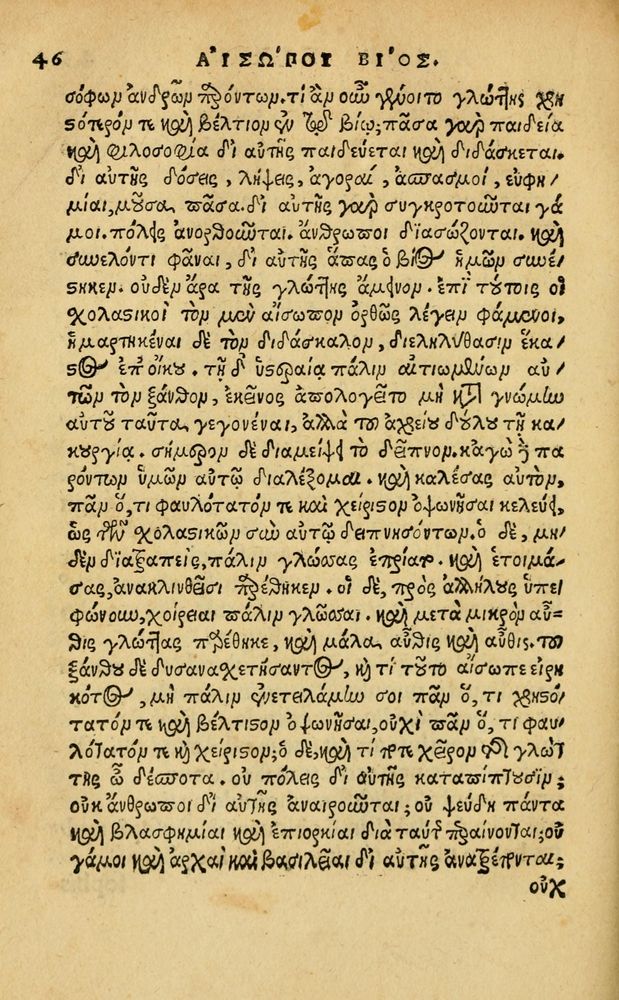 46 ΑἸΣΩ´ΠΟΥ ΒΙ´ΟΣ.
σόφων ἀνδρῶν παρόντων. τί ἂν οὖν γένοιτο γλώττης χρη
στότερόν τε καὶ βέλτιον ἐν τῷ βίῳ; πᾶσα γὰρ παιδεία
καὶ φιλοσοφία δι᾽ αὐτῆς παιδεύεται καὶ διδάσκεται.
δι᾽ αὐτῆς δόσεις, λήψεις, ἀγοραί, ἀσπασμοί, εὐφη/
μίαι, μοῦσα πᾶσα. δι᾽ αὐτῆς γὰρ συγκροτοῦνται γά
μοι. πόλεις ἀνορθοῦνται. ἄνθρωποι διασώζονται. καὶ
συνελόντι φάναι, δι᾽ αὐτῆς ἅπας ὁ βίος ἡμῶν συνέ/
στηκεν. οὐδὲν ἄρα τῆς γλώττης ἄμεινον. ἐπὶ τούτοις οἱ
σχολαστικοὶ τὸν μὲν αἴσωπον ὀρθῶς λέγειν φάμενοι,
ἡμαρτηκέναι δὲ τὸν διδάσκαλον, διεληλύθασιν ἕκα/
στος ἐπ᾽ οἴκου. τῇ δ᾽ ὑστεραίᾳ πάλιν αἰτιωμένων αὐ/
τῶν τὸν ξάνθον, ἐκεῖνος ἀπολογεῖτο μὴ κατὰ γνώμην
αὐτοῦ ταῦτα γεγονέναι, ἀλλὰ τοῦ ἀχρείου δούλου τῇ κα/
κουργίᾳ. σήμερον δὲ διαμείψει τὸ δεῖπνον. κᾀγὼ δὲ πα
ρόντων ὑμῶν αὐτῷ διαλέξομαι. καὶ καλέσας αὐτὸν,
πᾶν ὅ, τι φαυλότατόν τε καὶ χείριστον ὀψωνῆσαι κελεύει,
ὡς τῶν σχολαστικῶν σὺν αὐτῷ δειπνησόντων. ὁ δὲ, μη/
δὲν διατραπεὶς, πάλιν γλώσσας ἐπρίατο. καὶ ἑτοιμά/
σας, ἀνακλινθεῖσι παρέθηκεν. οἱ δὲ, πρὸς ἀλλήλους ὑπε/
φώνουν, χοίρειαι πάλιν γλῶσσαι. καὶ μετὰ μικρὸν αὖ=
θις γλώττας παρέθηκε, καὶ μάλα αὖθις καὶ αὖθις. τοῦ
ξάνθου δὲ δυσανασχετήσαντος, καὶ τί τοῦτο αἴσωπε εἰρη
κότος, μὴ πάλιν ἐνετειλάμην σοι πᾶν ὅ, τι χρηστό/
τατόν τε καὶ βέλτιστον ὀψωνῆσαι, οὐχὶ πᾶν ὅ, τι φαυ/
λότατόν τε καὶ χείριστον; ὁ δὲ, καὶ τί ποτε χεῖρον διὰ γλώτ
της ὦ δέσποτα. οὐ πόλεις δι᾽ αὐτῆς καταπίπτουσιν;
οὐκ ἄνθρωποι δι᾽ αὐτῆς ἀναιροῦνται; οὐ ψεύδη πάντα
καὶ βλασφημίαι καὶ ἐπιορκίαι διὰ ταύτης περαίνονται; οὐ
γάμοι καὶ ἀρχαὶ καὶ βασιλεῖαι δι᾽ αὐτῆς ἀνατρέπονται;
οὐχ